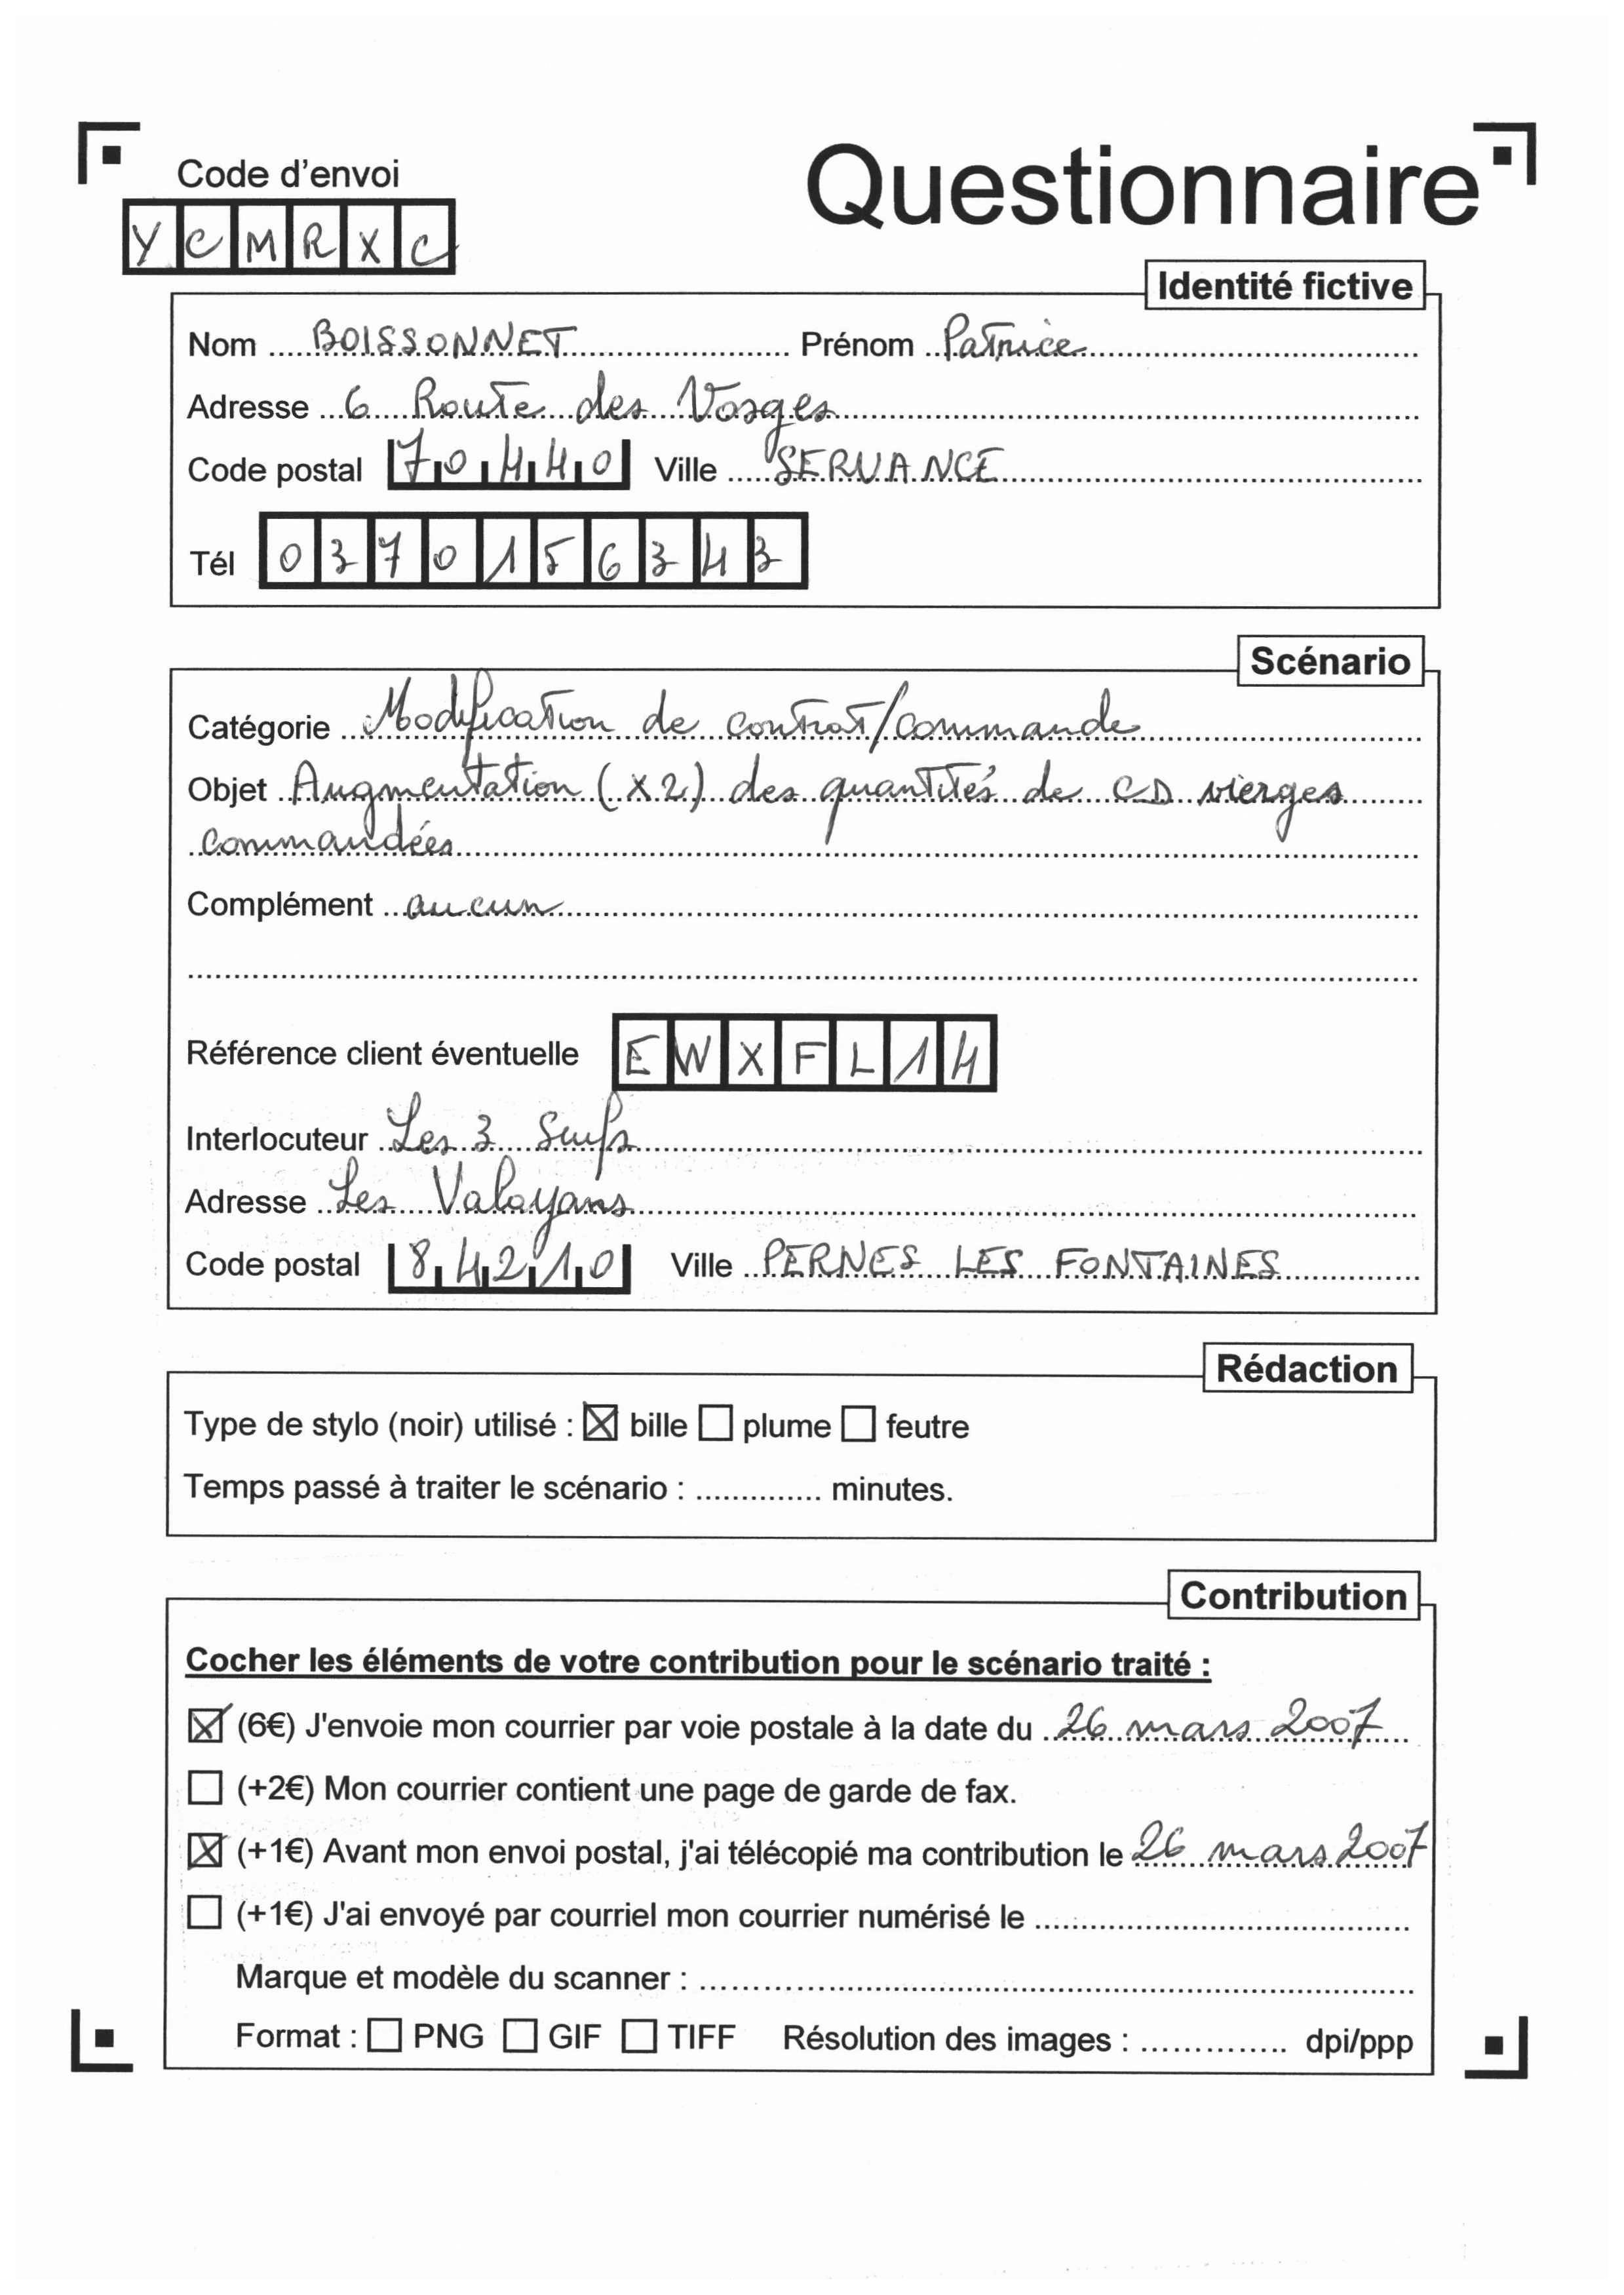 Code d'envoi
Questionnaire
YCMRXC
Identité fictive
Nom BOISSONNET Prénom Patrice
Adresse 6 Route des Vosges
Code postal 70440 Ville SERVANCE
Tél 0370156343
Scénario
Catégorie Modification de contrat/commande
Objet Augmentation (x2) des quantités de CD vierges
commandées
Complément aucun
Référence client éventuelle EWXFL14
Interlocuteur Les 3 Suifs
Adresse Les Valayans
Code postal 84210 Ville PERNES LES FONTAINES
Rédaction
Type de stylo (noir) utilisé : ☒ bille ☐ plume ☐ feutre
Temps passé à traiter le scénario : .............. minutes.
Contribution
Cocher les éléments de votre contribution pour le scénario traité :
☒ (6€) J'envoie mon courrier par voie postale à la date du 26 mars 2007
☐ (+2€) Mon courrier contient une page de garde de fax.
☒ (+1€) Avant mon envoi postal, j'ai télécopié ma contribution le 26 mars 2007
☐ (+1€) J'ai envoyé par courriel mon courrier numérisé le ..............
Marque et modèle du scanner : ..............
Format : ☐ PNG ☐ GIF ☐ TIFF Résolution des images : .............. dpi/ppp